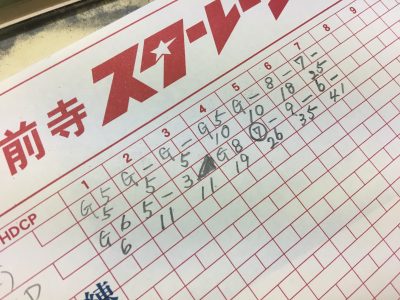 前寺 スターレー
1 2 3 4 5 6 7 8 9
HDCP
G 5 G - G - G 5 G - 8 - 7 -
5 5 5 10 10 18 25
G 6 5 - 3 ◢ G 8 ⑦ - 9 - 6 -
6 11 11 19 26 35 41
練